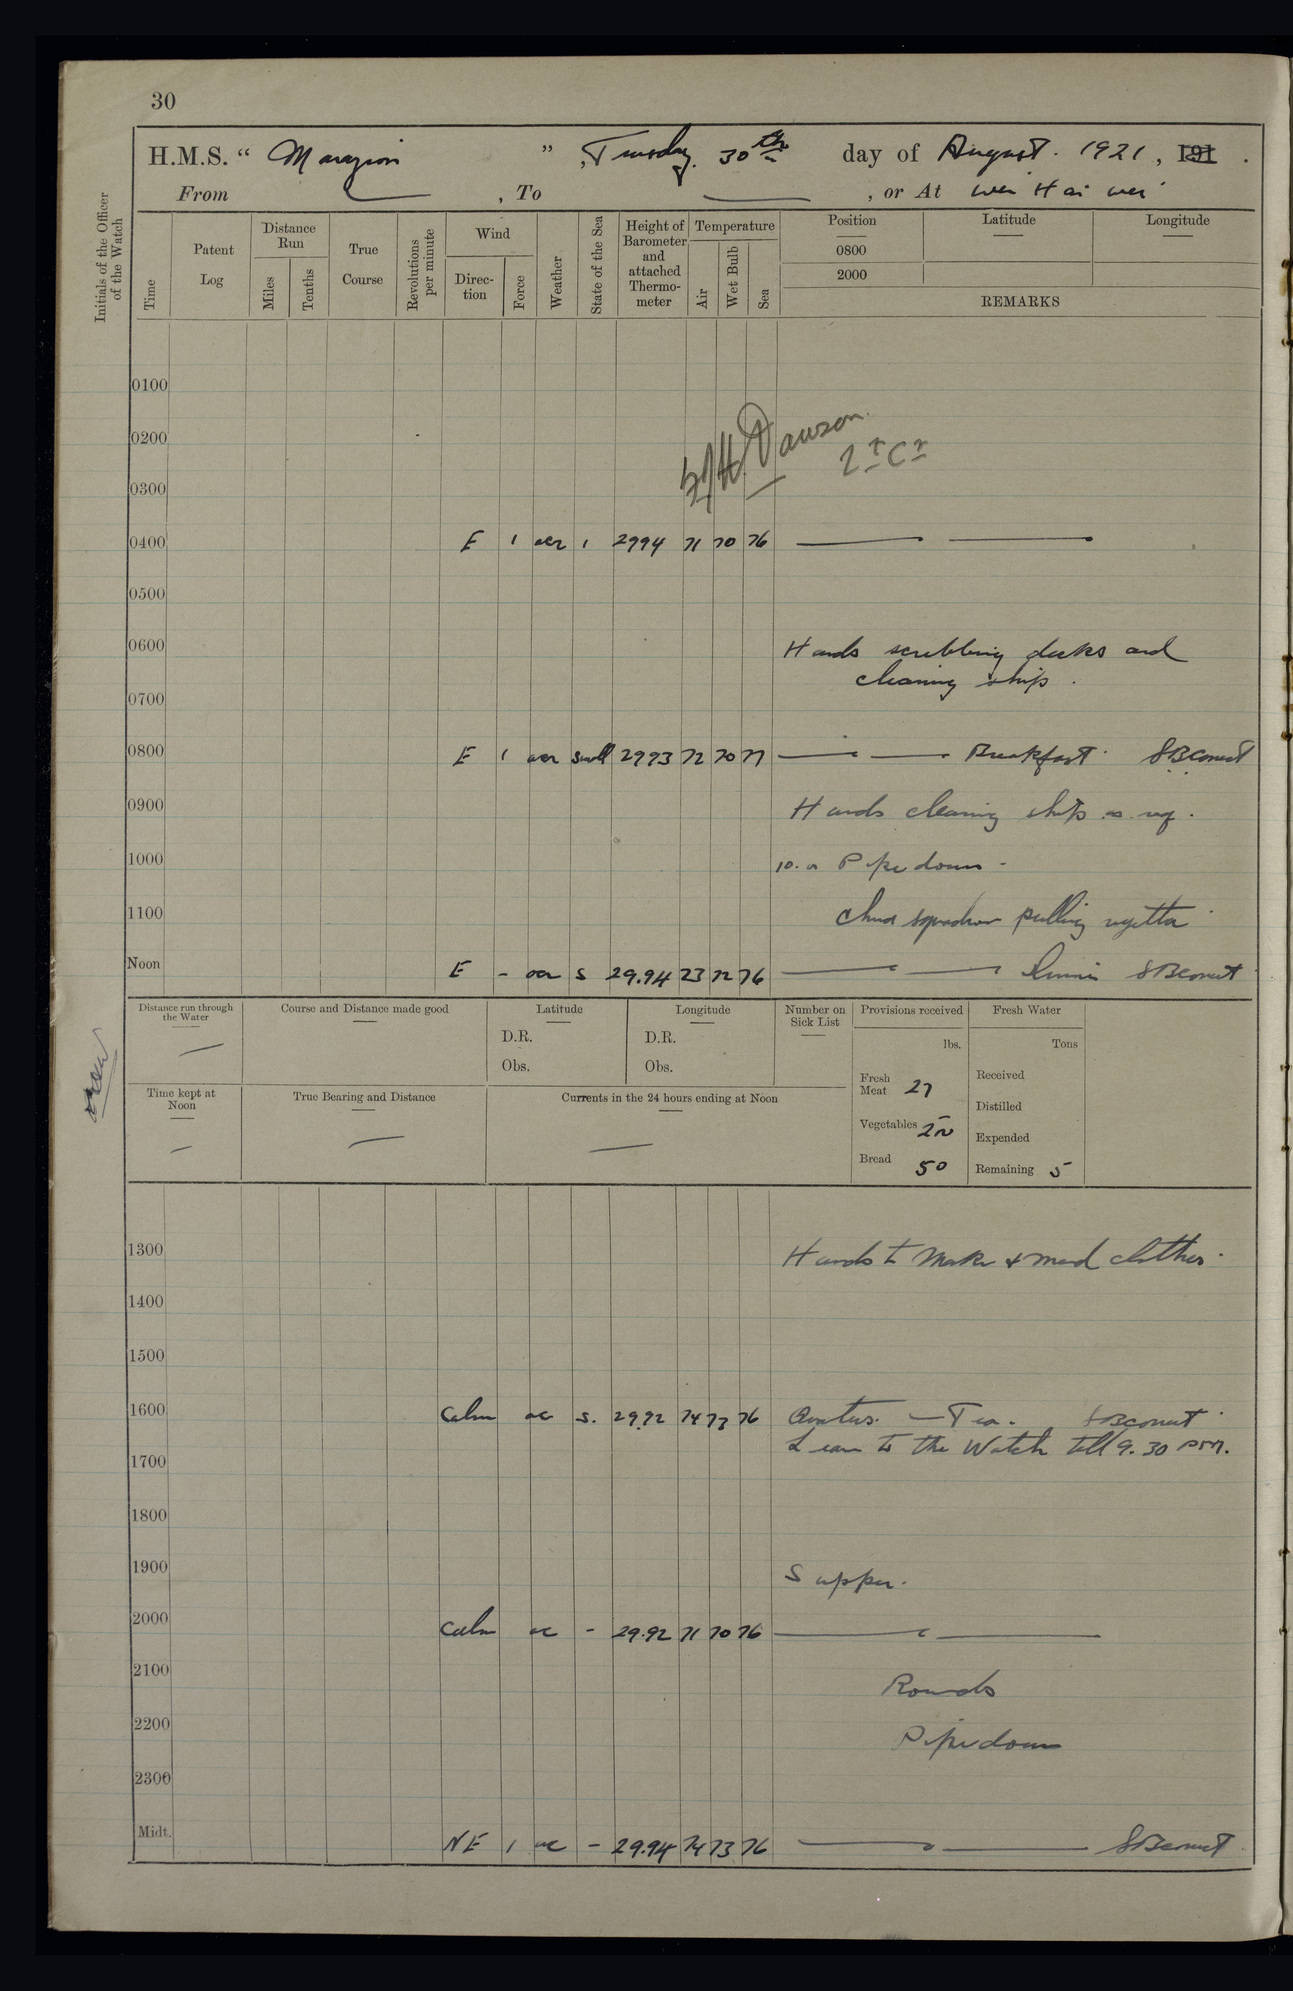 30
H.M.S. “ Marazion ” , Tuesday. 30th day of August. 1921, 191 .
From , To , or At Wei Hai Wei
Initials of the Officer of the Watch
Time
Patent Log
Distance Run
Miles
Tenths
True Course
Revolutions per minute
Wind
Direc-tion
Force
Weather
State of the Sea
Height of Barometer and attached Thermo-meter
Temperature
Air
Wet Bulb
Sea
Position
Latitude
Longitude
0800
2000
REMARKS
0100
0200
Dawson
0300
0400 E 1 ocr 1 2994 71 70 76
0500
0600 Hands scrubbing decks and
cleaning ship.
0700
0800 E 1 ocr Small 2993 72 70 77 Breakfast.
0900 Hands cleaning ship as req.
1000 10.0 Pipe down.
1100 China squadron pulling regatta
Noon E - ocr S 29.94 73 72 76 Dinner
Distance run through the Water
Course and Distance made good
Latitude
D.R.
Obs.
Longitude
D.R.
Obs.
Number on Sick List
Provisions received
lbs.
Fresh Meat 27
Vegetables
Bread 50
Fresh Water
Tons
Received
Distilled
Expended
Remaining 5
Time kept at Noon
True Bearing and Distance
Currents in the 24 hours ending at Noon
1300 Hands to Make & mend clothes.
1400
1500
1600 Calm oc S. 29.92 74 73 76 Quarters. — Tea.
Leave to the Watch till 9.30 pm.
1700
1800
1900 Supper.
2000 Calm oc - 29.92 71 70 76
2100 Rounds
2200 Pipe down
2300
Midt. NE 1 oc - 29.94 74 73 76